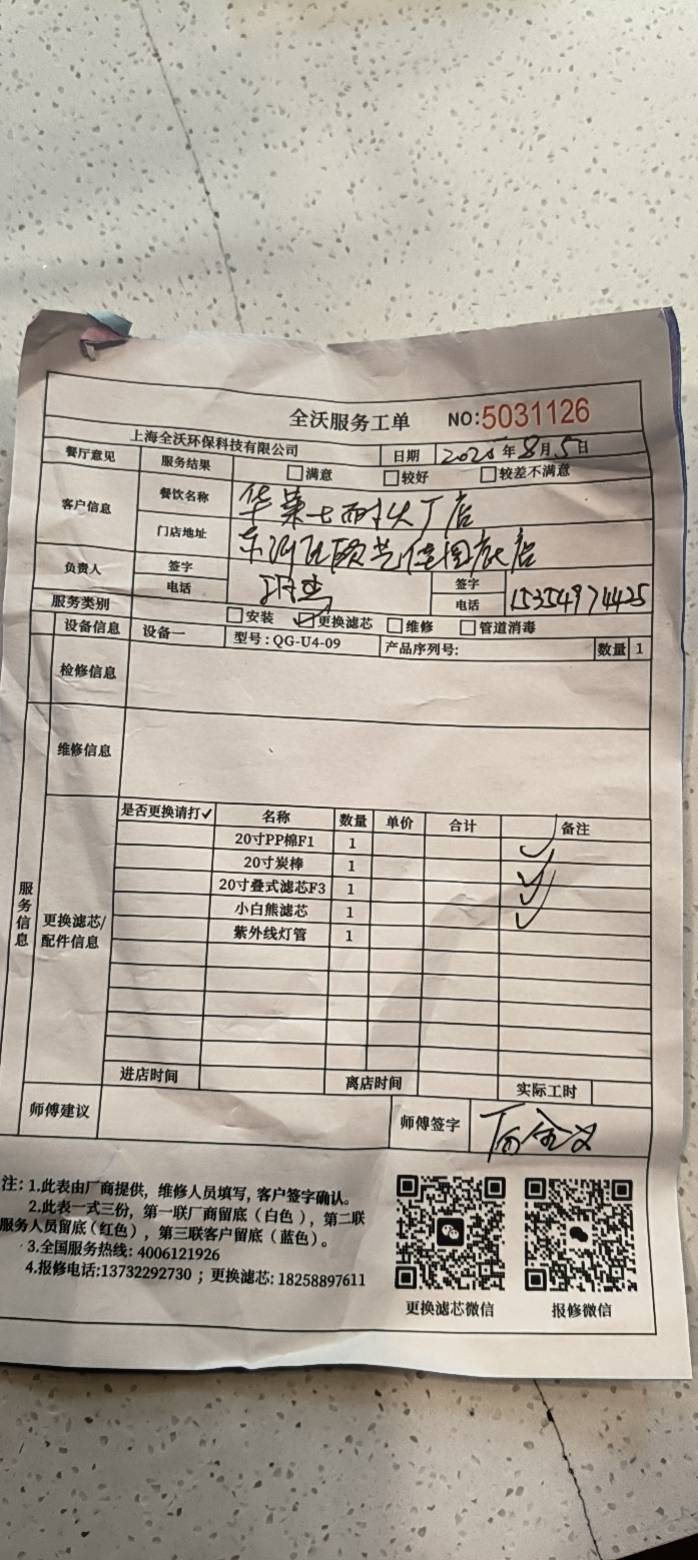 全沃服务工单 NO:5031126
上海全沃环保科技有限公司 日期 2025年8月5日
餐厅意见 服务结果 满意 较好 较差不满意
客户信息 餐饮名称 华莱士耐火厂店
门店地址
负责人 签字 签字
电话 电话 15354974425
服务类别 安装 更换滤芯 维修 管道消毒
设备信息 设备一 型号:QG-U4-09 产品序列号: 数量 1
检修信息
维修信息
服务信息
更换滤芯/配件信息
是否更换请打✓ 名称 数量 单价 合计 备注
20寸PP棉F1 1 ✓
20寸炭棒 1 ✓
20寸叠式滤芯F3 1 ✓
小白熊滤芯 1 ✓
紫外线灯管 1
进店时间 离店时间 实际工时
师傅建议 师傅签字
注:1.此表由厂商提供，维修人员填写，客户签字确认。
2.此表一式三份，第一联厂商留底（白色），第二联
服务人员留底（红色），第三联客户留底（蓝色）。
3.全国服务热线: 4006121926
4.报修电话:13732292730 ；更换滤芯: 18258897611
更换滤芯微信 报修微信